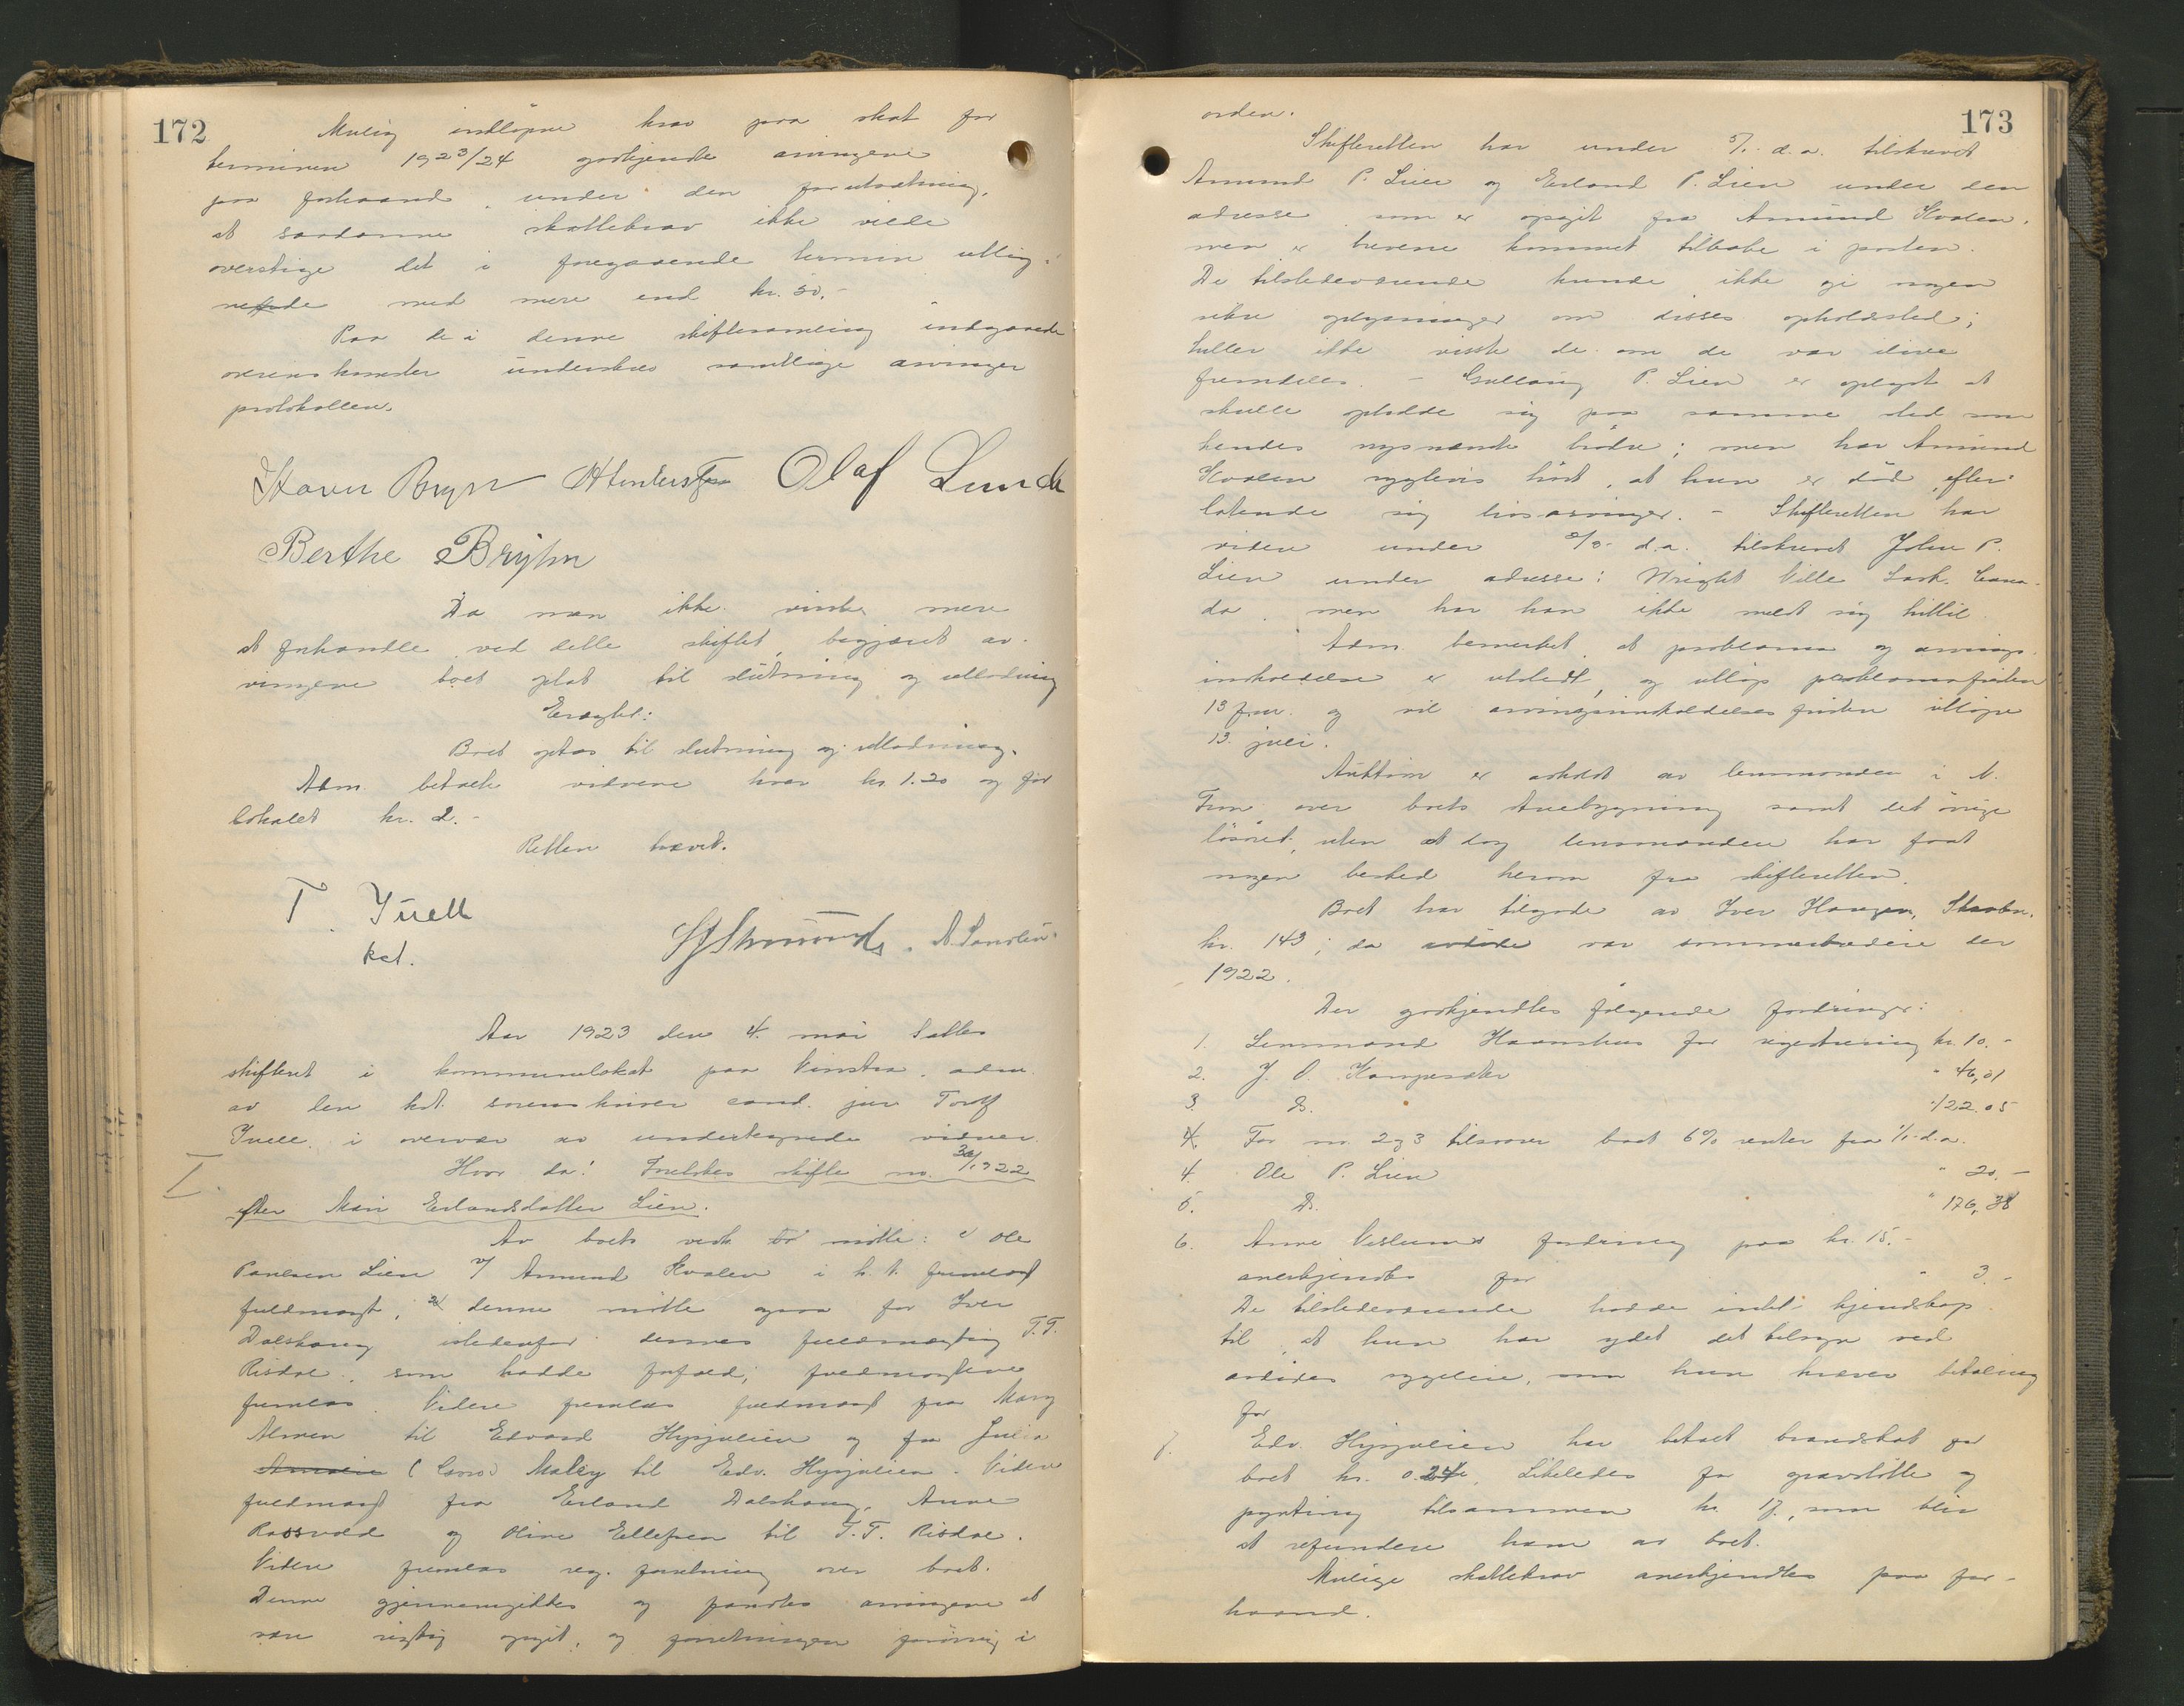 172
Mulig indløpne krav paa skat for
terminen 1923/24 godkjendte arvingene
paa forhaand under den forutsætning,
at saadanne skattekrav ikke vilde
overstige det i foregaaende termin utlig-
nede med mere end kr. 50.-
Paa de i denne skiftesamling indgaaede
overenskomster underskrev samtlige arvinger
protokollen.
Olaf Lunde
Berthe Bryhn
Da man ikke visste mere
at forhandle ved dette skiftet, begjæret ar-
vingene boet optat til slutning og utlodning
Eragtet:
Boet optas til slutning og utlodning.
Adm. betalte vidnene hver kr. 1.20 og for
lokalet kr. 2.-
Retten hævet.
T. Juell
kst.
Aar 1923 den 4. mai sattes
skifteret i kommunelokalet paa Vinstra, adm.
av den kst. sorenskriver cand. jur Torolf
Juell i overvær av undertegnede vidner.
I.
Hvor da: Fræltes skifte no. /1922
efter Mari Erlandsdatter Lien.
Av boets vedk. møtte: Ole
Paulsen Lien v/ Amund Kvalen i h. t. fremlagt
fuldmagt, denne møtte ogsaa for Iver
Dalshaug istedenfor dennes fuldmægtig T.T.
Risdal, som hadde forfald; fuldmagtene
fremlas. Videre fremlas fuldmagt fra Mary
Almen til Edvard Hysjulien og fra Julia
Maley til Edv. Hysjulien. Videre
fuldmagt fra Erland Dalshaug, Anne
Rassvold og Oline Ellefsen til T.T. Risdal.
Videre fremlas reg. forretning over boet.
Denne gjennemgikkes og fandtes arvingene at
være rigtig opgit, og forretningen forøvrig i
173
orden.
Skifteretten har under 5/1. d.a. tilskrevet
Amund P. Lien og Erland P. Lien under den
adresse som er opgit fra Amund Kvalen,
men er brevene kommet tilbake i posten.
De tilstedeværende kunde ikke gi nogen
sikre oplysninger om disses opholdssted;
heller ikke visste de om de var ilive
fremdeles. - Gullaug P. Lien er oplyst at
skulle opholde sig paa samme sted som
hendes nysnævnte brødre; men har Amund
Kvalen rygtevis hørt, at hun er død efter-
latende sig livsarvinger. - Skifteretten har
videre under d.a. tilskrevet John P.
Lien under adresse: Wright Ville Sask. Cana-
da, men har han ikke meldt sig hittil.
Adm. bemerket, at proklama og arvings-
indkaldelse er utstedt, og utløp proklamafristen
13 og vil arvingsindkaldelsesfristen utløpe
13. juli.
Auktion er avholdt av lensmanden i N.
Fron over boets stuebygning samt det øvrige
løsøret, uten at dog lensmanden har faat
nogen besked herom fra skifteretten.
Boet har tilgode av Iver Haugen,
kr. 143; da avdøde var sommerbudeie der
1922.
Der godkjendtes følgende fordringer:
1. Lensmand Haanshus for registrering kr. 10.-
2. J. O. Kampesæter " 46,01
3. Do. " 122.05
For no. 2 og 3 tilsvarer boet 6% renter fra 1/1. d.a.
4. Ole P. Lien " 20.-
5. Do. " 176,38
6. Anne Veslums fordring paa kr. 15.-
anerkjendtes for " 3.-
De tilstedeværende hadde intet kjendskap
til, at hun har ydet det tilsyn ved
avdødes sygeleie, som hun kræver betaling
for
7. Edv. Hysjulien har betalt brandskat for
boet kr. 0.24, likeledes for gravstøtte og
pynting tilsammen kr. 17., som blir
at refundere ham av boet.
Mulige skattekrav anerkjendtes paa for-
haand.